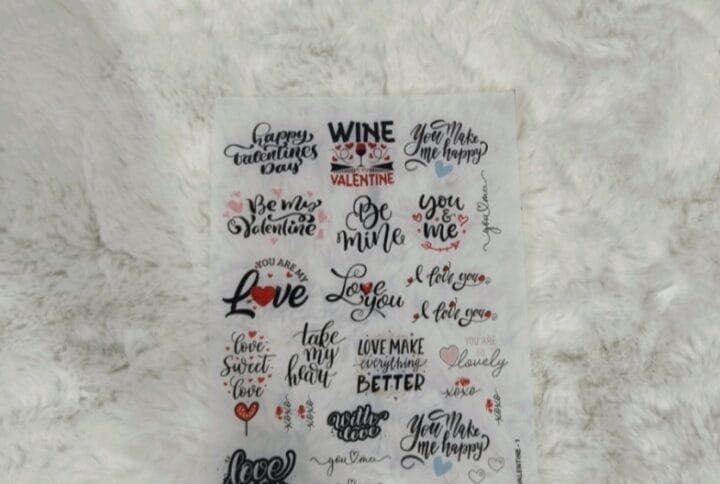 happy
Valentines
Day
WINE
VALENTINE
You Make
me happy
Be My
Valentine
Be
mine
you
&
me
you me
YOU ARE MY
Love
Love
you
I love you
I love you
love
Sweet
love
take
my
heart
LOVE MAKE
everything
BETTER
YOU ARE
SO
lovely
xoxo
xoxo
xoxo
xoxo
with
love
You Make
me happy
you me
love
VALENTINE - 1